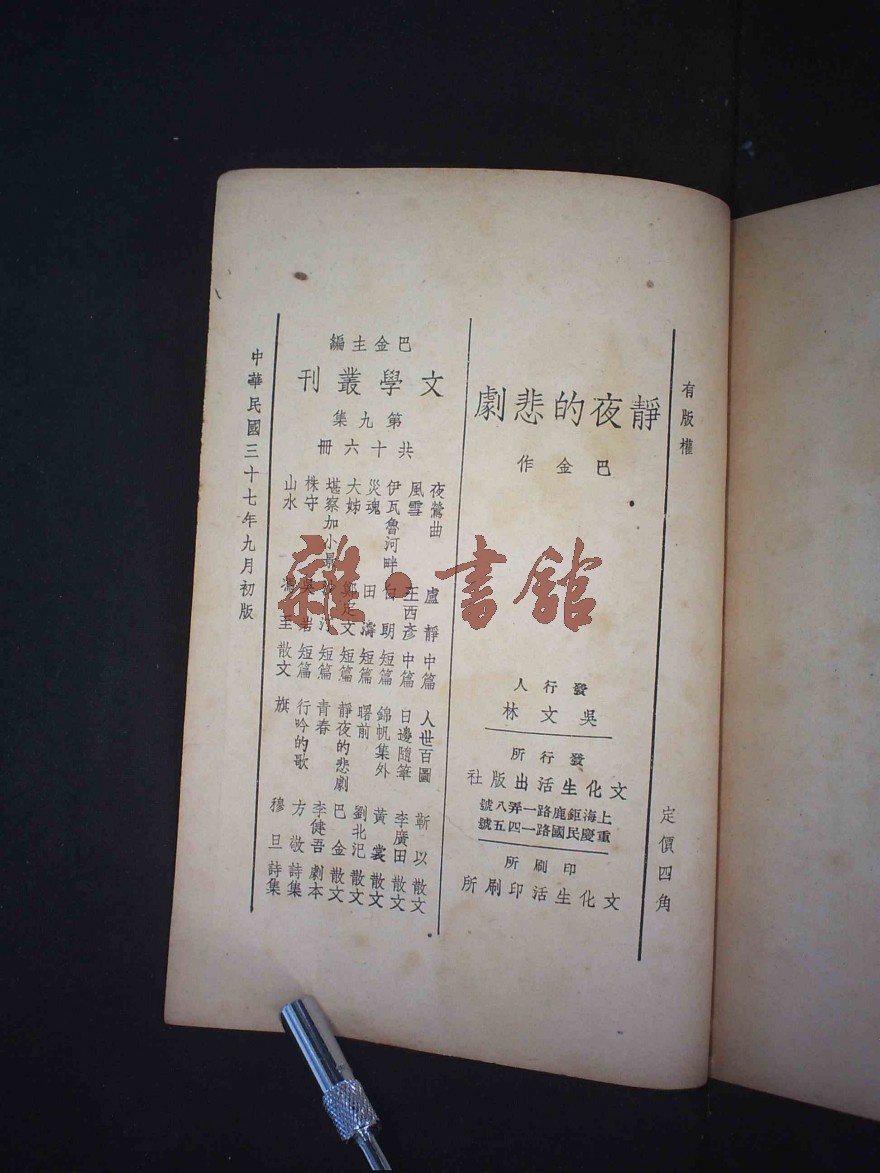 有版權
定價四角
靜夜的悲劇
巴金作
發行人
吳文林
發行所
文化生活出版社
上海鉅鹿路一弄八號
重慶民國路一四五號
印刷所
文化生活印刷所
巴金主編
文學叢刊
第九集
共十六冊
夜鶯曲 盧靜 中篇
風雪 王西彥 中篇
伊瓦魯河畔 白朗 短篇
災魂 田濤 短篇
大姊 鄭定文 短篇
堪察加小景 沙汀 短篇
株守 吳岩 短篇
山水 馮至 散文
人世百圖 靳以 散文
日邊隨筆 李廣田 散文
錦帆集外 黃裳 散文
曙前 劉北汜 散文
靜夜的悲劇 巴金 散文
青春 李健吾 劇本
行吟的歌 方敬 詩集
旗 穆旦 詩集
中華民國三十七年九月初版
雜·書館